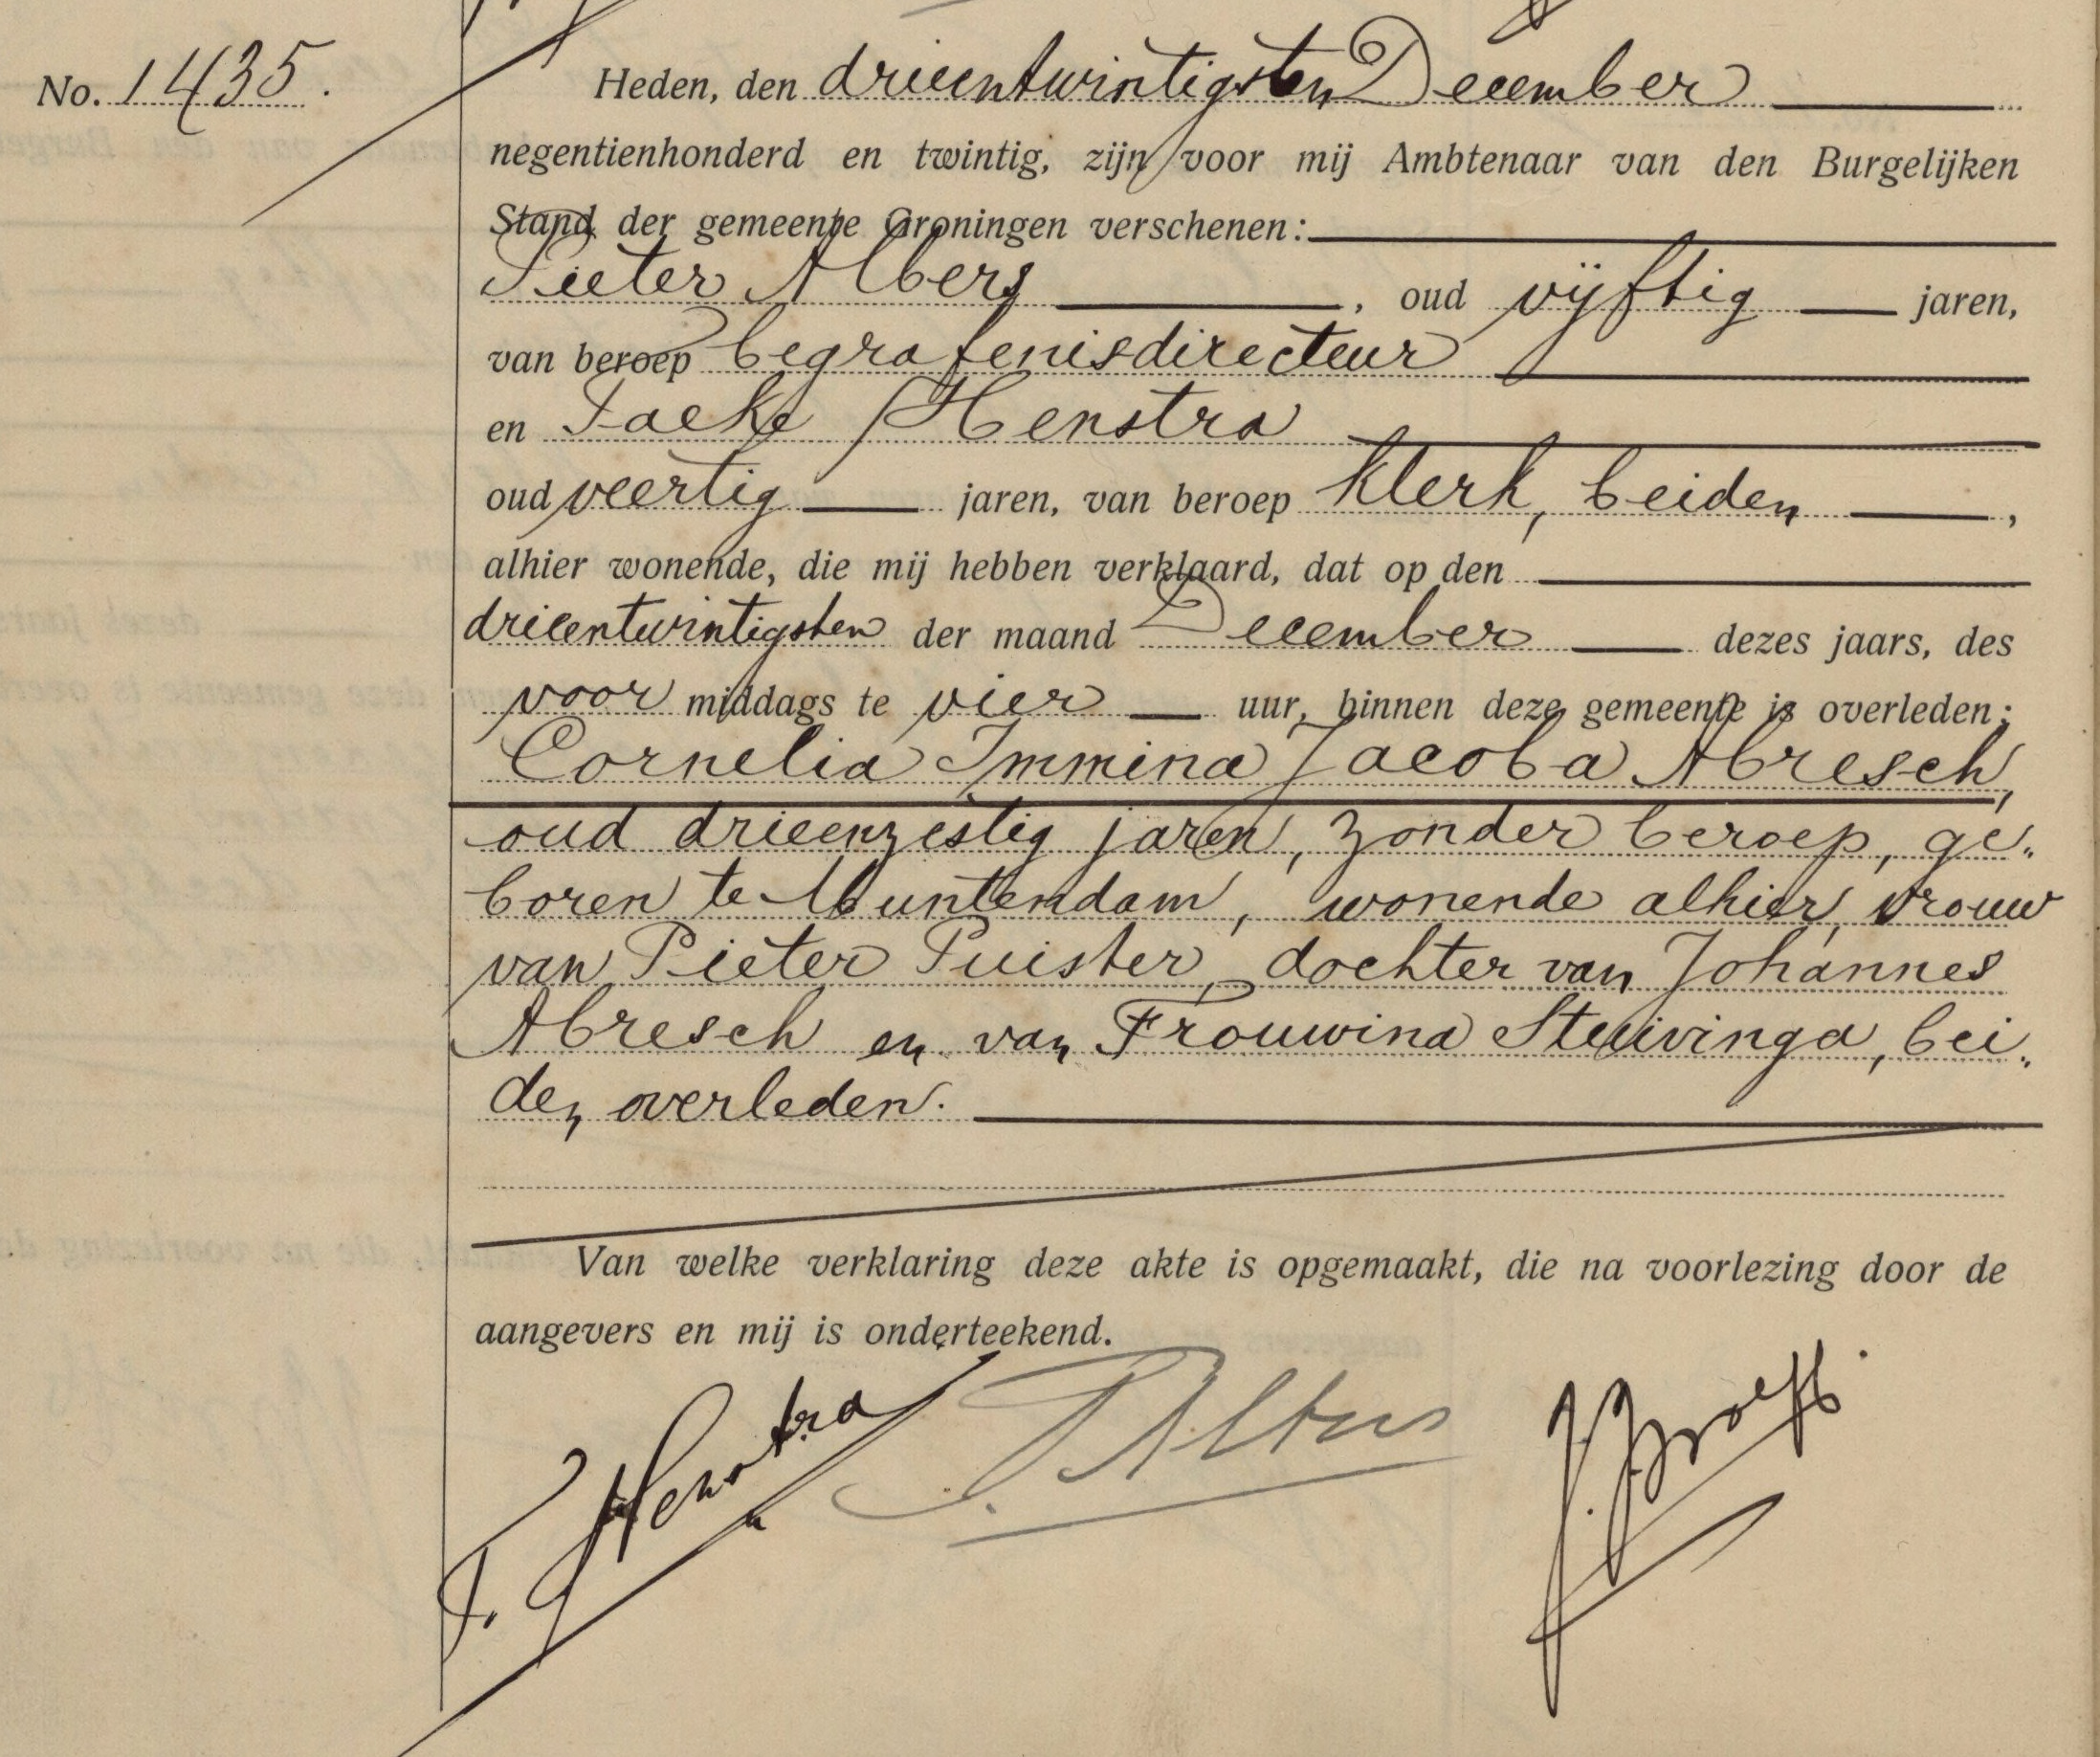 No. 1435.
Heden, den drieentwintigsten December
negentienhonderd en twintig, zijn voor mij Ambtenaar van den Burgelijken
Stand der gemeente Groningen verschenen:
Pieter Albers, oud vijftig jaren,
van beroep begrafenisdirecteur
en Taeke Henstra
oud veertig jaren, van beroep klerk, beiden,
alhier wonende, die mij hebben verklaard, dat op den
drieentwintigsten der maand December dezes jaars, des
voor middags te vier uur, binnen deze gemeente is overleden:
Cornelia Immina Jacoba Abresch,
oud drieenzestig jaren, zonder beroep, ge„
boren te Muntendam, wonende alhier, vrouw
van Pieter Puister, dochter van Johannes
Abresch en van Frouwina Stuivinga, bei„
den overleden.
Van welke verklaring deze akte is opgemaakt, die na voorlezing door de
aangevers en mij is onderteekend.
T. Henstra P. Albers